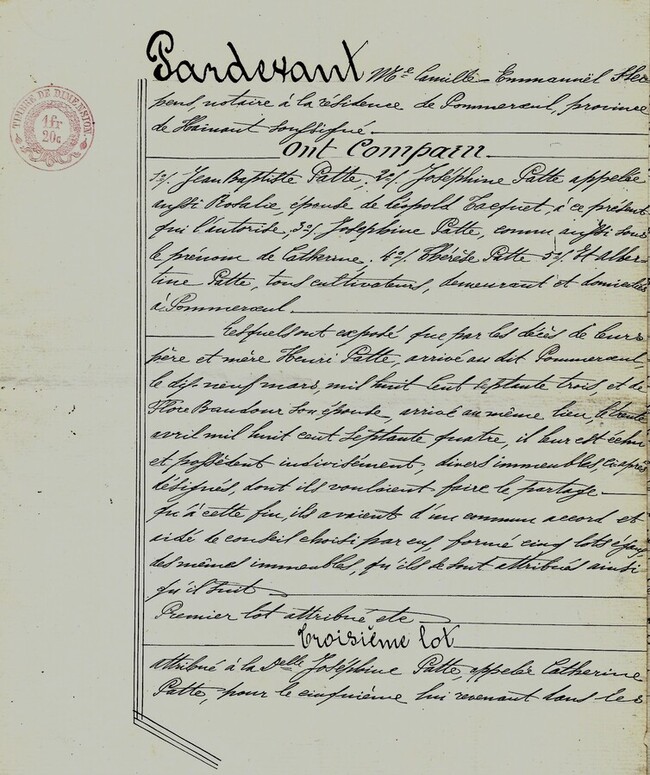 TIMBRE DE DIMENSION
1 fr
20c
Pardevant Me Camille-Emmanuël Her
pens, notaire à la résidence de Pommerœul, province
de Hainaut soussigné.
Ont Comparu
1°/. Jean Baptiste Patte, 2°/. Joséphine Patte appelée
aussi Rosalie, épouse de Léopold Tacquet, à ce présent
qui l'autorise, 3°/. Joséphine Patte, connu aussi sous
le prénom de Catherine. 4°/. Thérèse Patte 5°/. Et Alber
tine Patte, tous cultivateurs, demeurant et domiciliés
à Pommerœul.
Lesquels ont exposé que par les décès de leurs
père et mère Henri Patte, arrivé au dit Pommerœul,
le dix neuf mars, mil huit cent septante trois, et de
Flore Baudour son épouse, arrivé au même lieu, le trente
avril mil huit cent septante quatre, il leur est échu
et possèdent indivisément, divers immeubles, ci après
désignés, dont ils voulaient faire le partage
qu'à cette fin, ils avaient d'un commun accord et
aidé de conseil choisi par eux, formé cinq lots égaux
des mêmes immeubles, qu'ils se sont attribués ainsi
qu'il suit
Premier lot attribué etc
Troisième lot
attribué à la Delle Joséphine Patte, appelée Catherine
Patte, pour le cinquième lui revenant dans les